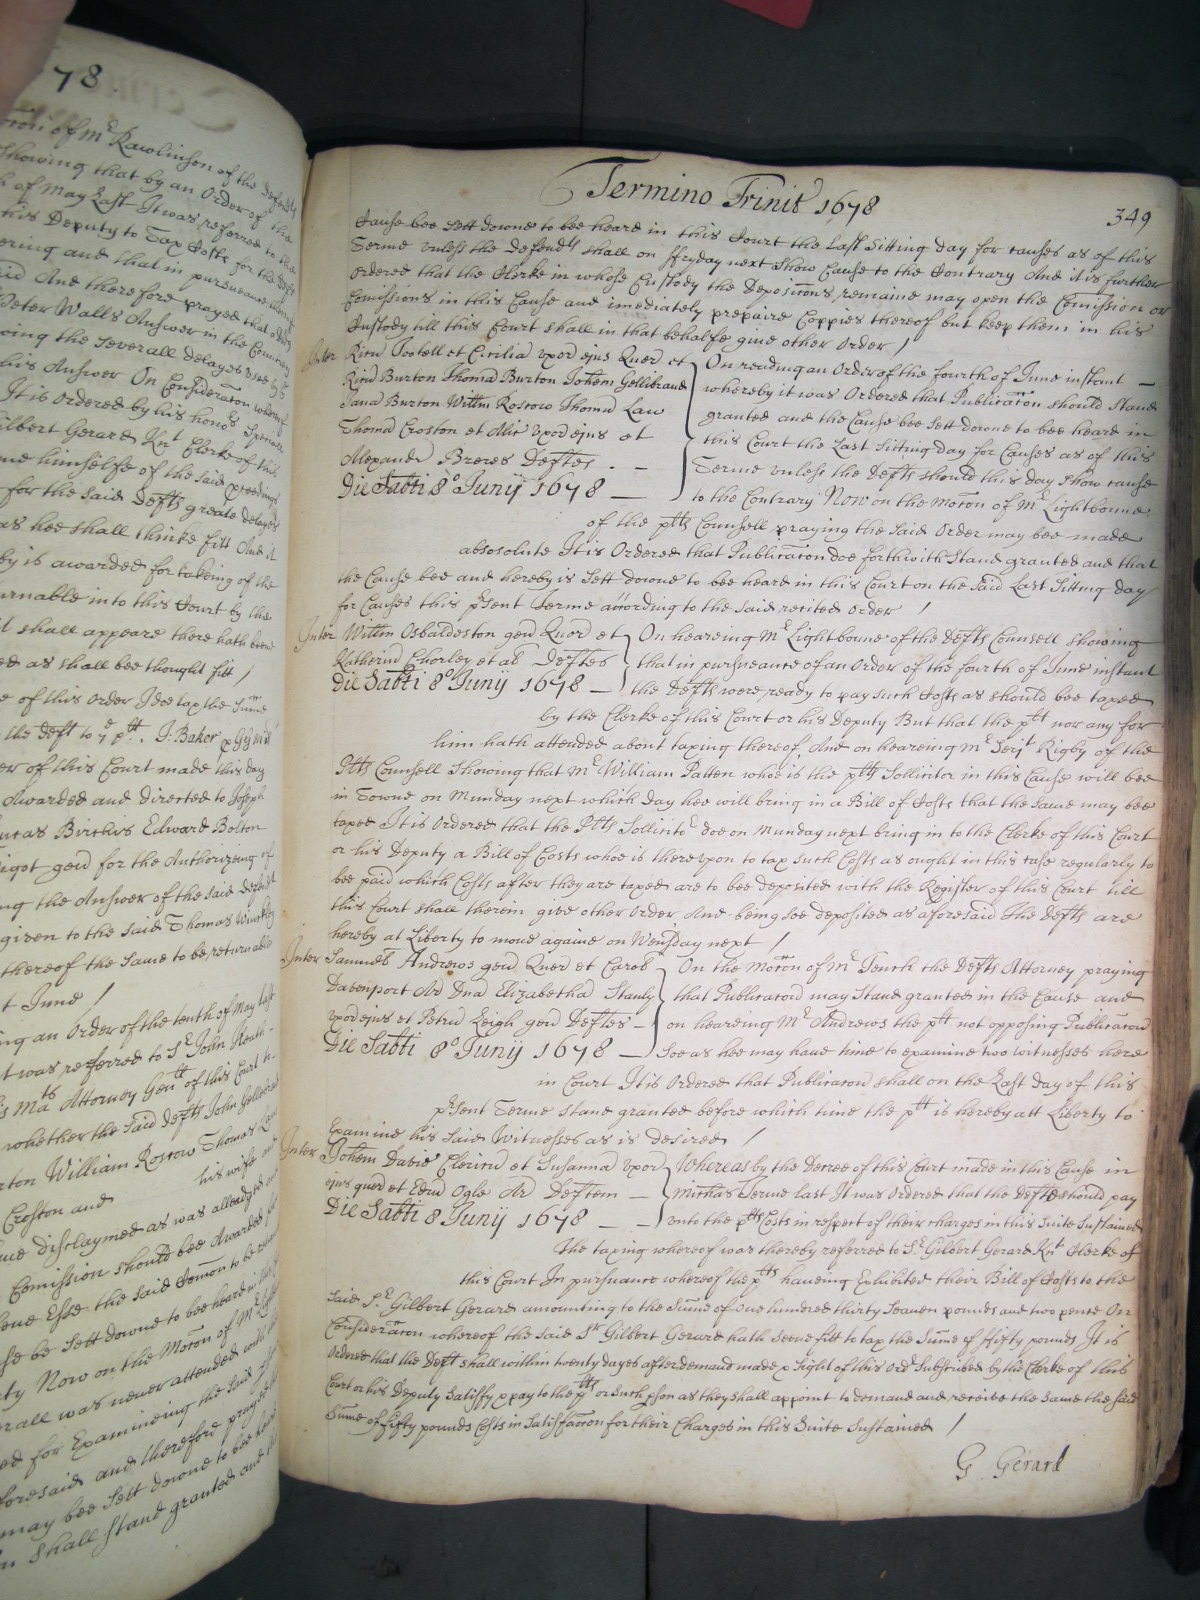 78.
of Mr Rawlinson of the Defendts
showing that by an Order of the
of May Last It was referred to the
his Deputy to Tax Costs for the
and that in pursueance
And therefore prayed that
Peter Walls Answer in the
the severall delayes used by
his Answer On Consideraton whereof
It is Ordered by his hono:
Gilbert Gerard Knt Clerke of this
himselfe of the said
for the said Defts greate delayes
as hee shall thinke fitt And it
by is awarded for takeing of the
returnable into this Court by the
shall appeare there hath
as shall bee thought fitt /
of this Order I doe tax the Sume
the Deft to ye ptt. J: Baker
of this Court made this day
Awarded and directed to Joseph
Lucas Birches Edward Bolton
gen for the Authorizeing of
the Answer of the said
given to the said Thomas
thereof the same to be returnable
June /
an Order of the tenth of May last
it was referred to Sr John Heath
his Mats Attorney Genll of this Court
whether the said Defts John Gellibrand
William Roscow Thomas Law
Croston and his wife and
disclaymed as was alleadged
Comission should bee Awarded
Else the said
be sett downe to bee heard in
Now on the Moton of Mr
was never attended with
for Examineing the said
aforesaid and therefore prayed
may bee sett downe to bee heard
shall stand granted and
Termino Trinit 1678
349
Cause bee sett downe to bee heard in this Court the Last sitting day for causes as of this
Terme unless the Defendts shall on ffryday next show Cause to the Contrary And it is further
ordered that the Clerke in whose Custody the Depositons remaine may open the Comission or
Comissions in this Cause and imediately prepaire Coppies thereof but keep them in his
Custody till this Court shall in that behalfe give other order /
Inter Ricu Tootell et Cicilia uxor ejus Quer et
Ricu Burton Thoma Burton Johem Gellibrand
Jana Burton Willm Roscow Thoma Law
Thoma Croston et Alic uxor ejus et
Alexander Breres Deftes . -
Die Sabti 8o Junij 1678 —
On reading an Order of the fourth of June instant —
whereby it was Ordered that Publicaton should stand
granted and the Cause bee sett downe to bee heard in
this Court the Last sitting day for Causes as of this
Terme unless the Defts should this day show cause
to the Contrary Now on the Moton of Mr Lightbowne
of the ptts Counsell praying the said Order may bee made
absosolute It is Ordered that Publicaton doe forthwith stand granted and that
the Cause bee and hereby is sett downe to bee heard in this Court on the said Last sitting day
for Causes this psent Terme according to the said recited order /
Inter Willm Osbaldeston gen Quer et
Katherin Chorley et al Deftes
Die Sabti 8o Junij 1678 —
On heareing Mr Lightbowne of the Defts Counsell showing
that in pursueance of an Order of the fourth of June instant
the Defts were ready to pay such Costs as should bee taxed
by the Clerke of this Court or his Deputy But that the ptt nor any for
him hath attended about taxing thereof And on heareing Mr Serjt Rigby of the
Ptts Counsell showing that Mr William Patten whoe is the ptts Sollicitor in this Cause will bee
in Towne on Munday next which day hee will bring in a Bill of Costs that the same may bee
taxed It is Ordered that the Ptts Sollicitor doe on Munday next bring in to the Clerke of this Court
or his Deputy a Bill of Costs whoe is thereupon to tax such Costs as ought in this case regularly to
bee paid which Costs after they are taxed are to bee deposited with the Register of this Court till
this Court shall therein give other order And being soe deposited as aforesaid The Defts are
hereby at Liberty to move againe on Wensday next /
Inter Samuel Andrewes gen Quer et Carol
Davenport Ar Dna Elizabetha Stanly
uxor ejus et Petru Leigh gen Deftes —
Die Sabti 8o Junij 1678 —
On the Moton of Mr Tench the Defts Attorney praying
that Publicaton may stand granted in the Cause and
on heareing Mr Andrews the ptt not opposing Publicaton
soe as hee may have time to examine two witnesses here
in Court It is Ordered that Publicaton shall on the Last day of this
psent Terme stand granted before which time the ptt is hereby att Liberty to
Examine his said Witnesses as is desired /
Inter Johem Davis Clericu et Susanna uxor
ejus quer et Edru Ogle Ar Deftem —
Die Sabti 8o Junij 1678 — —
Whereas by the Decree of this Court made in this Cause in
Michas Terme last It was Ordered that the Deft should pay
unto the ptts Costs in respect of their charges in this Suite Sustained
the taxing whereof was thereby referred to Sr Gilbert Gerard Knt Clerke of
this Court In pursuance whereof the ptts haveing Exhibited their Bill of Costs to the
said Sr Gilbert Gerard amounting to the Sume of One hundred thirty Seaven pounds and two pence On
Consideraton whereof the said Sr Gilbert Gerard hath seene fitt to tax the Sume of ffifty pounds It is
Ordered that the Deft shall within twenty dayes after demand made & sight of this Ordr Subscribed by the Clerke of this
Court or his Deputy satisfy & pay to the ptts or such pson as they shall appoint to demand and receive the same the said
Sume of fifty pounds Costs in Satisfacton for their Charges in this Suite Sustained /
G Gerard